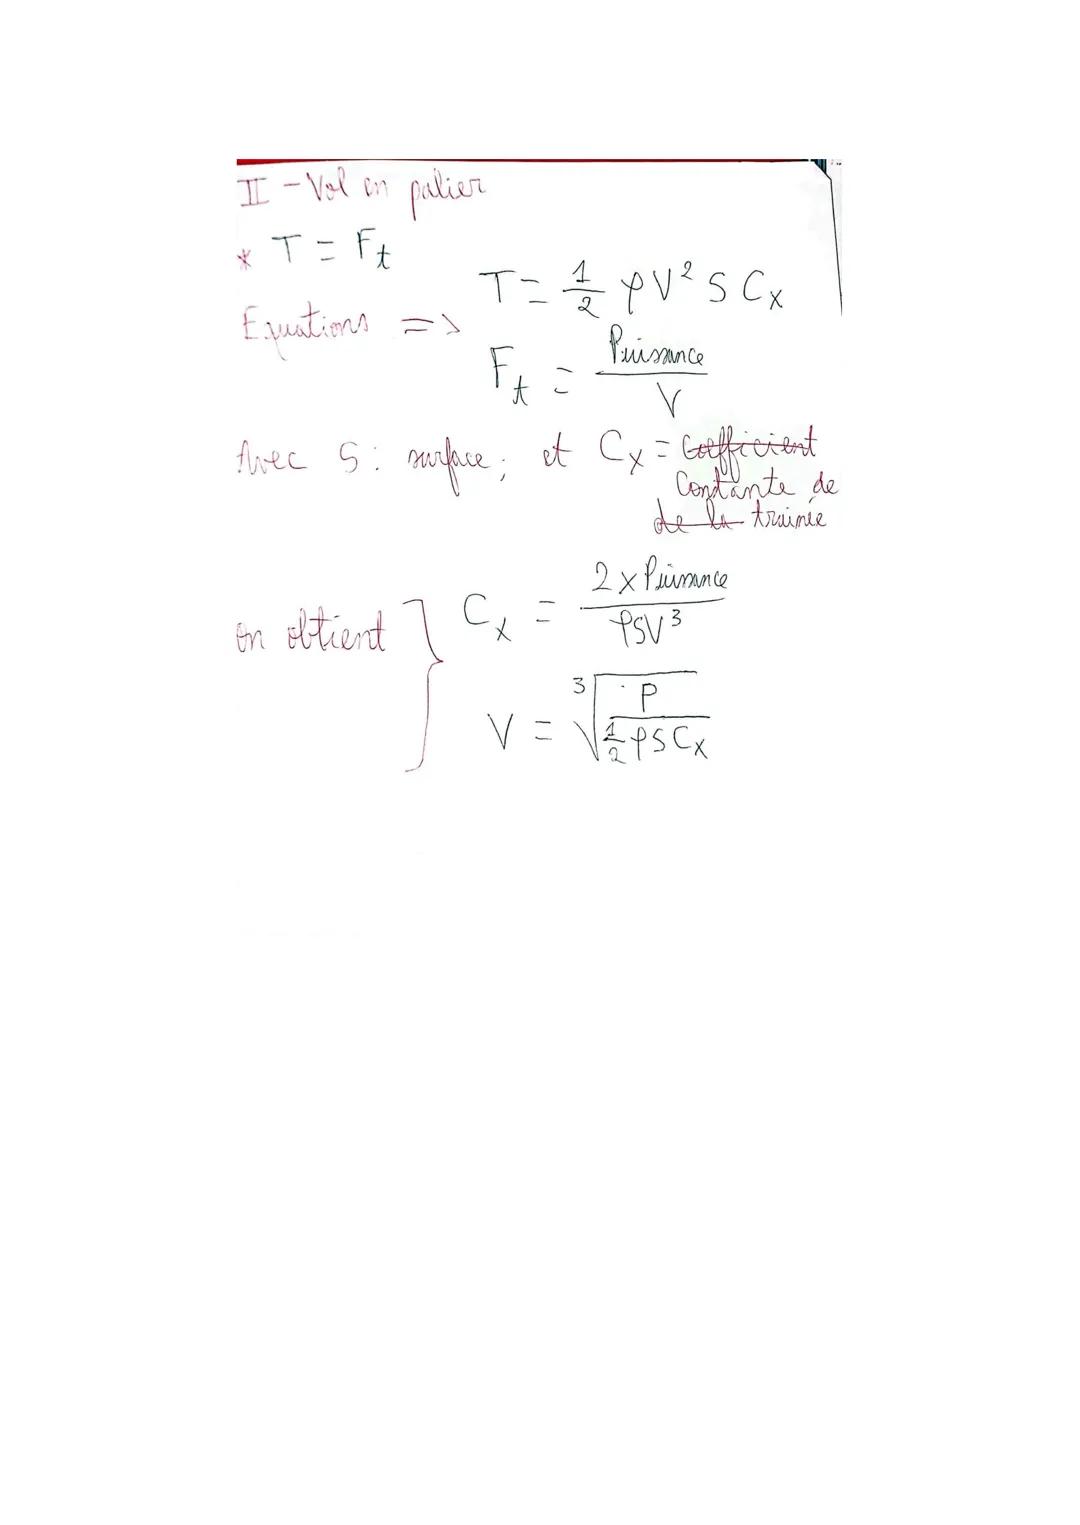 II - Vol en palier
* T = Ft
Equations => T = 1/2 ρV² S Cx
Ft = Puissance / V
Avec S : surface ; et Cx = ~~Coefficient~~
Constante de
~~de la~~ trainée
on obtient } Cx = 2 x Puissance / ρSV³
V = ³√(P / (1/2 ρ S Cx))